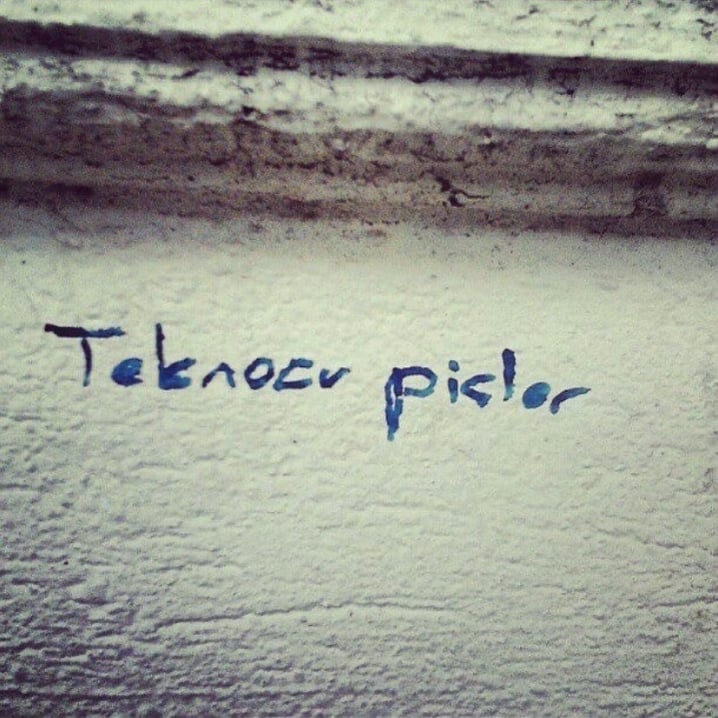 Teknocu picler